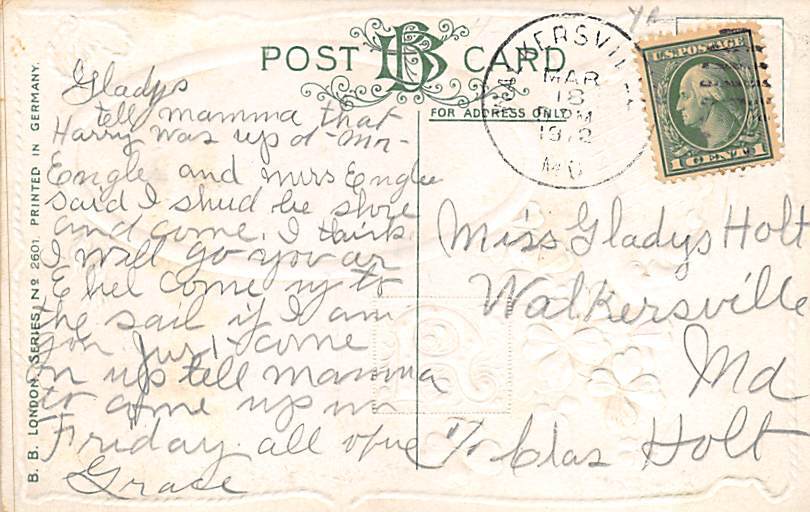 POST BB CARD
FOR ADDRESS ONLY
WALKERSVILLE
MAR
18
M
1912
MD
U.S. POSTAGE
1 CENT 1
Gladys
tell mamma that
Harry was up at Mr
Engle and mrs Engle
said I shud be shore
and come. I think
I will go you ar
Ethel come up to
the sail if I am
gon Just come
on up tell mamma
to come up on
Friday. all of ue
Grace
Miss Gladys Holt
Walkersville
Md
c/o Clas Holt
B. B. LONDON, SERIES, No 2601. PRINTED IN GERMANY.